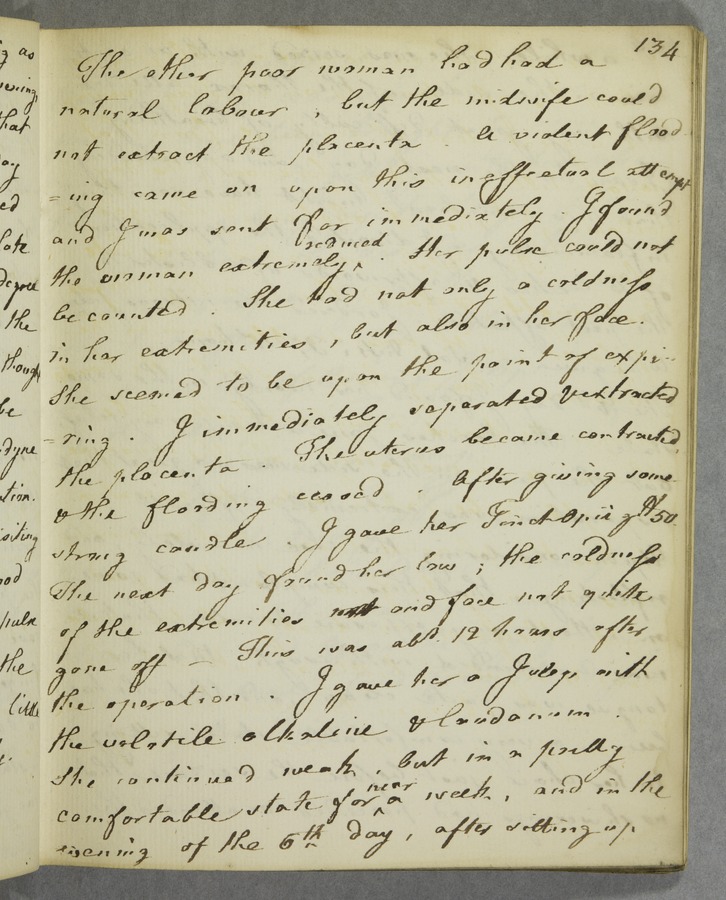 134
The other poor woman had had a
natural labour, but the midwife could
not extract the placenta. A violent flood
=ing came on upon this ineffectual attempt
and I was sent for immediately. I found
the woman extremely reduced. Her pulse could not
be counted. She had not only a coldness
in her extremities, but also in her face.
She seemed to be upon the point of expi-
=ring. I immediately separated & extracted
the placenta. The uterus became contracted,
& the flooding ceased. After giving some
strong caudle. I gave her Tinct Opii gtt 50
The next day found her low; the coldness
of the extremities and face not quite
gone off — This was abt. 12 hours after
the operation. I gave her a Julep with
the volatile alkaline & laudanum.
She continued weak, but in a pretty
comfortable state for near a week, and in the
evening of the 6th day, after sitting up